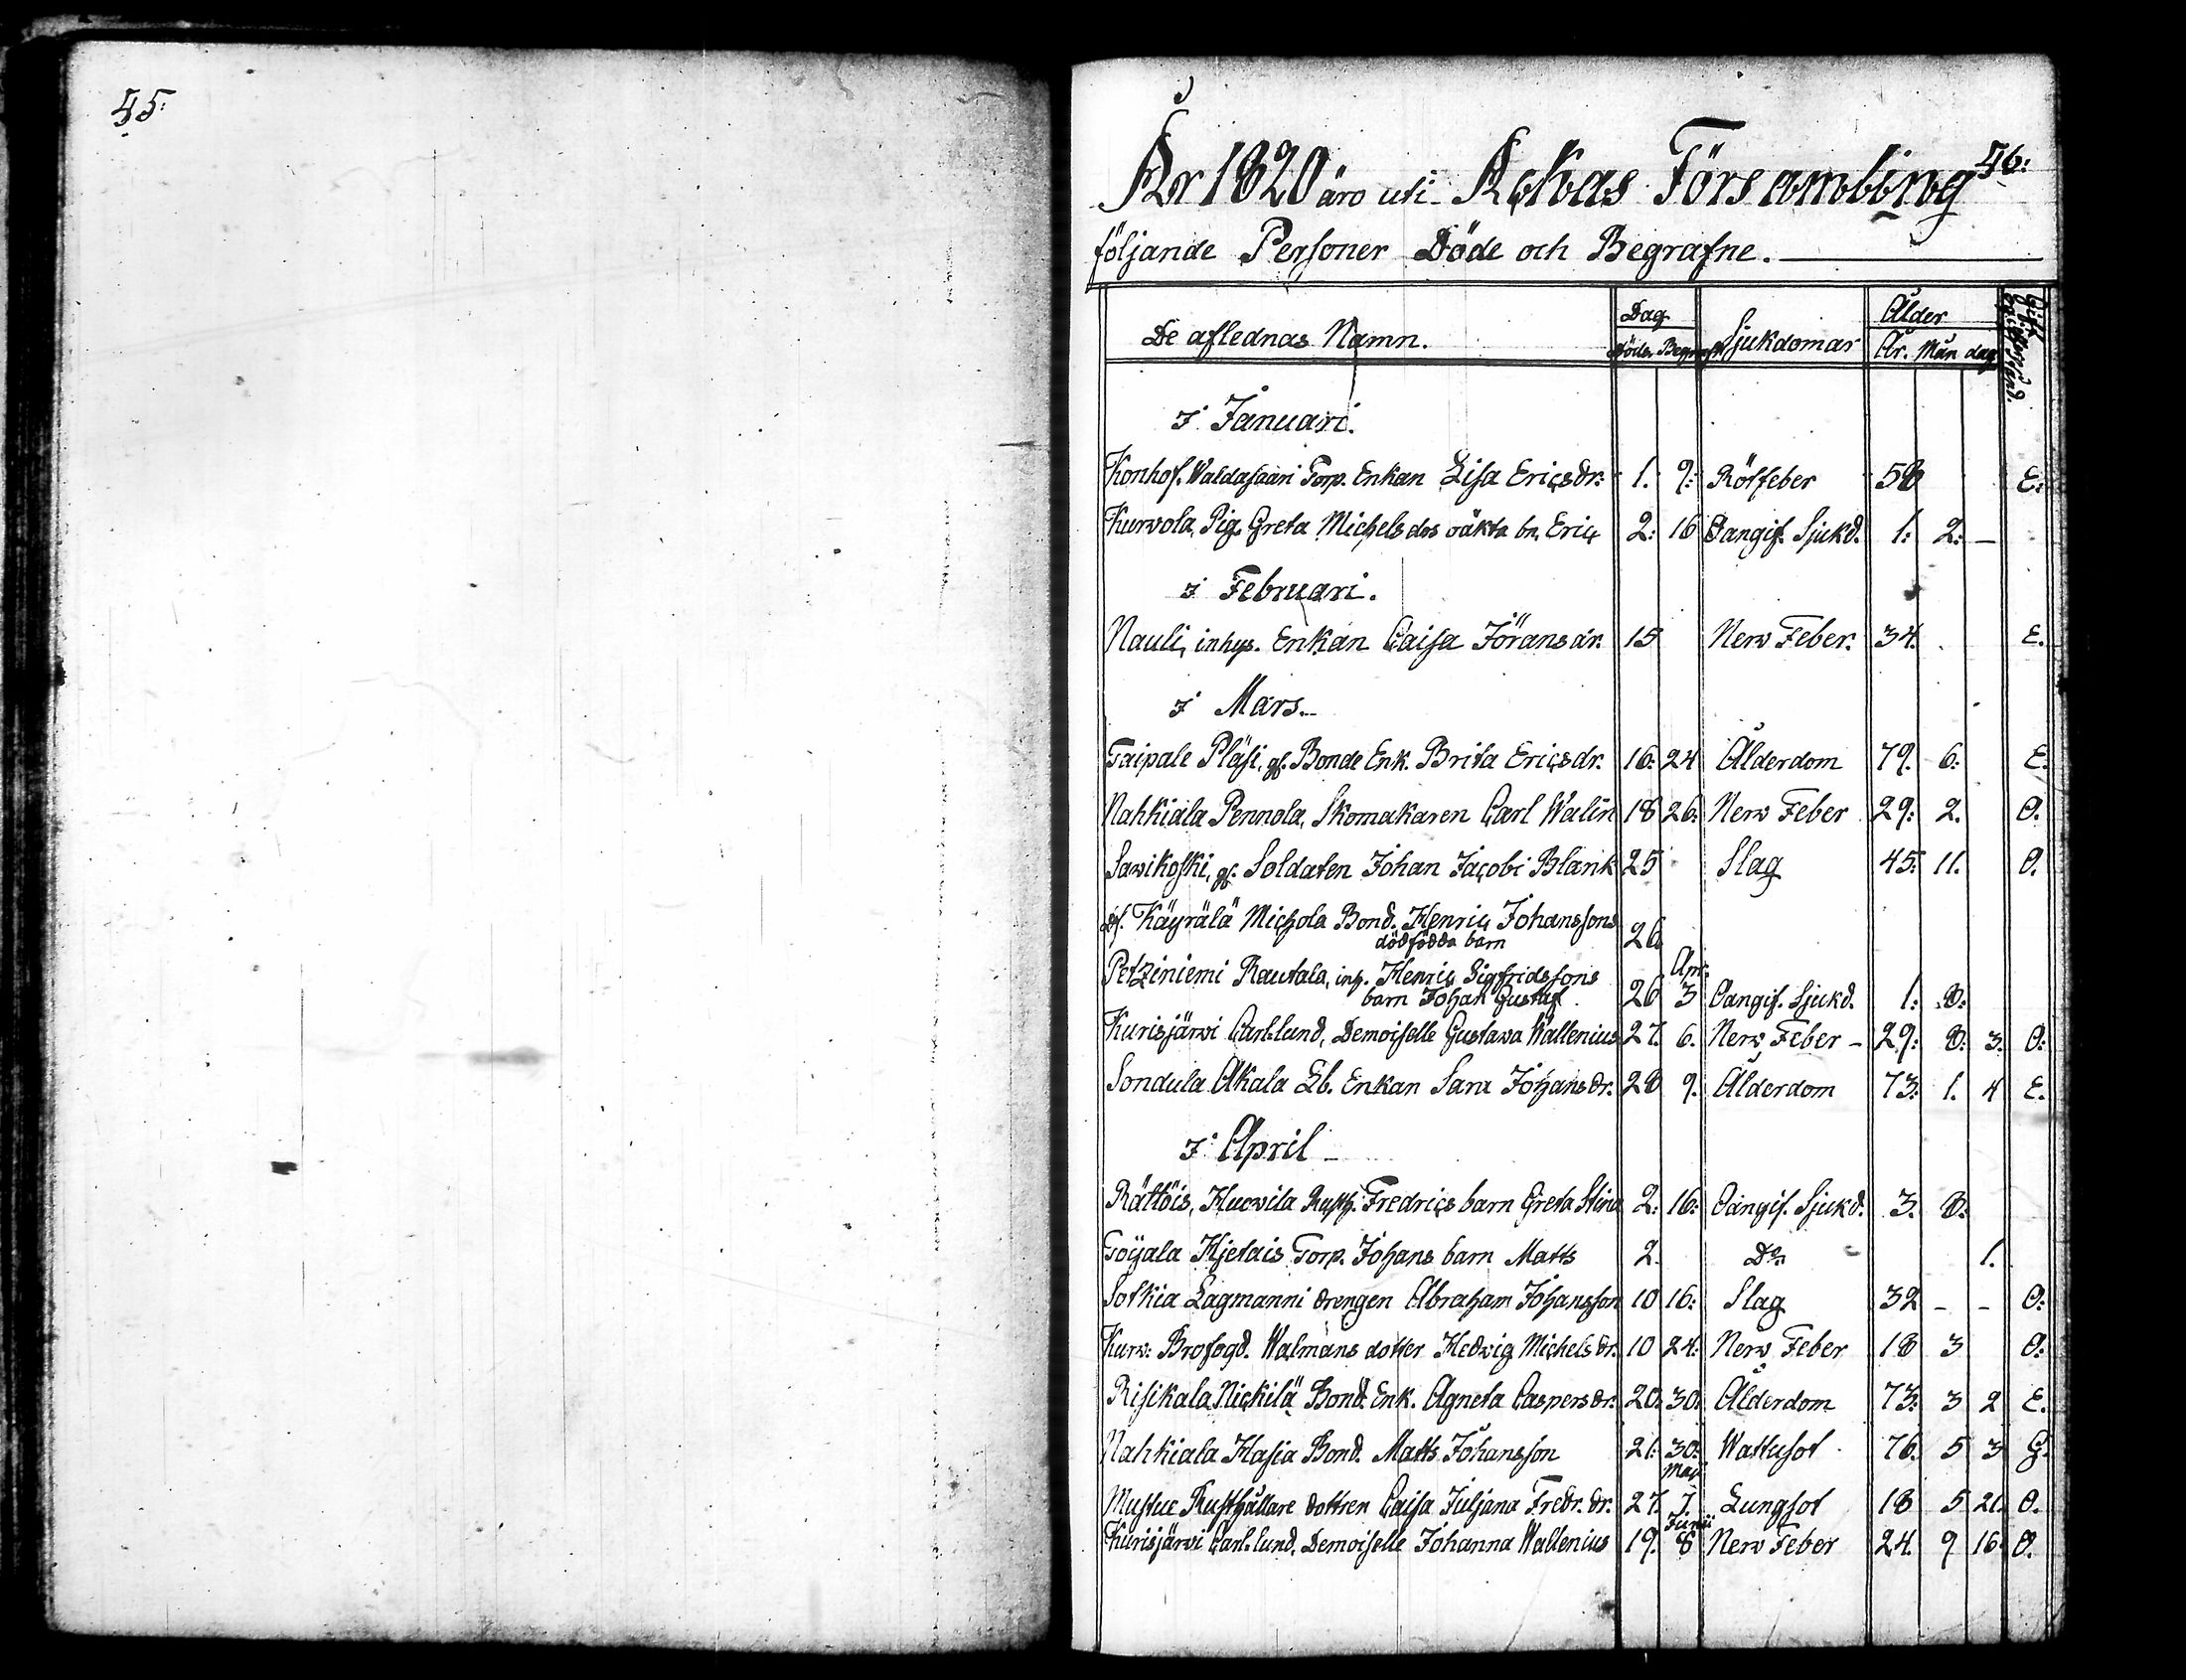 45:
46:
År 1820 äro uti Ackas Försambling
följande Personer Döde och Begrafne.
De aflednas Namn. Dag Sjukdomar Ålder
Döde Begrafn År. Mån dag
i Januari.
Konhof. Waldasaari Torp. Enkan Lisa Ericsdr: 1. 9: Rötfeber 58 E:
Kurvola, Pig. Greta Michelsdos oäkta bn, Eric 2: 16 Oangif. Sjukd. 1: 2: —
i Februari.
Nauli, inhys. Enkan Caisa Jöransdr. 15 Nerv Feber. 34. E.
i Mars.
Taipale Pläsi, gf. Bonde Enk. Brita Ericsdr. 16: 24 Ålderdom 79. 6: E.
Nahkiala Pennola, Skomakaren Carl Walin 18 26: Nerv Feber 29: 2. O.
Savikoski, gf. Soldaten Johan Jacobi Blank 25 Slag 45: 11. O.
df. Käyrälä Michola Bond. Henric Johanssons
dödfödda barn 26
Petziniemi Rautala, inh. Henric Sigfridssons Apr:
barn Johan Gustaf. 26 3 Oangif. Sjukd. 1: 8:
Kurisjärvi Carlslund, Demoiselle Gustava Wallenius 27. 6. Nerv Feber – 29: 8: 3. O:
Sondula Akala Lb. Enkan Sara Johansdr. 28 9. Ålderdom 73: 1. 4 E.
i April
Rättöis, Huovila Rusth. Fredrics barn Greta Stina 2: 16: Oangif. Sjukd. 3. 8:
Toijala Hjetais Torp. Johans barn Matts 2. Do 1.
Sotkia Lagmanni drengen Abraham Johansson 10 16: Slag 32 – – O:
Kurv: Brofogd. Walmans dotter Hedvig Michelsdr. 10 24: Nerv Feber 18 3 O:
Risikala Nickilä Bond. Enk. Agneta Caspersdr. 20: 30. Ålderdom 73: 3 2 E.
Nahkiala Hasia Bond. Matts Johansson 21: 30: Wattusot 76. 5 3 G.
Maji
Mustue Rusthållare dottren Caisa Juljana Fredr. dr. 27. 7. Lungsot 18 5 21. O.
Junii
Kurisjärvi Carlslund, Demoiselle Johanna Wallenius 19. 8 Nerv Feber 24. 9 16 O.